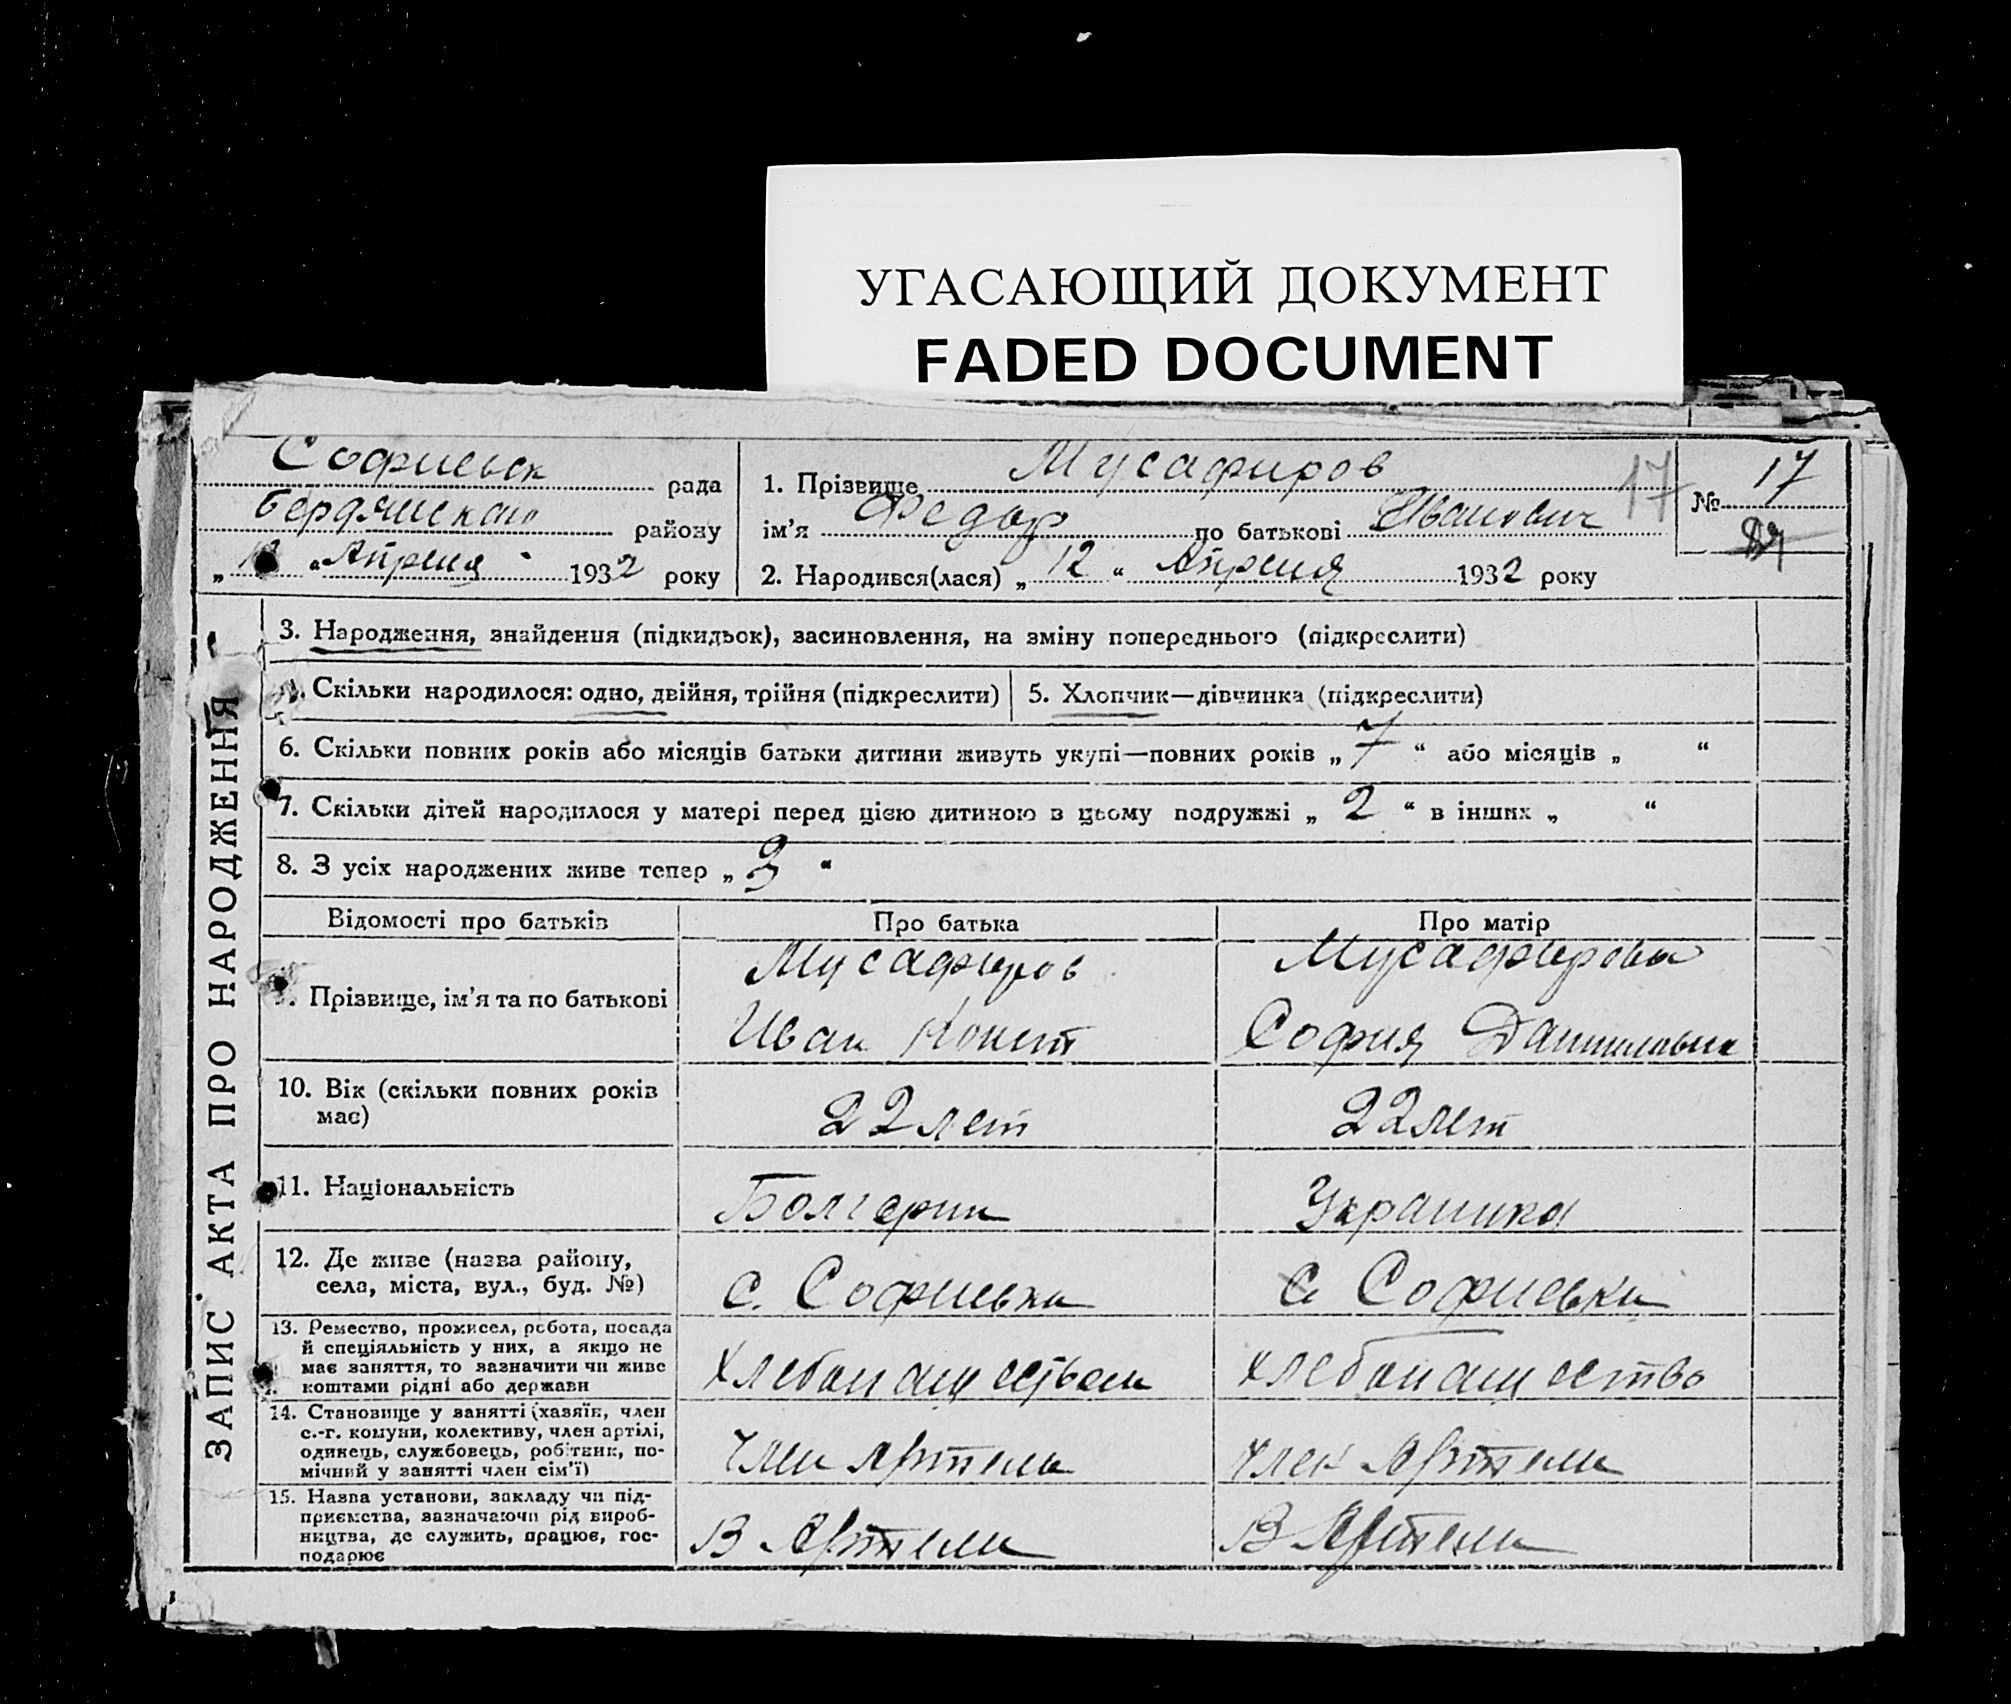 УГАСАЮЩИЙ ДОКУМЕНТ
FADED DOCUMENT
Софиевск рада
Бердянскаго району
„ “ Апреля 1932 року
1. Прізвище Мусафиров 17
ім’я Федор по батькові Иванович
2. Народився(лася) „ 12 “ Апреля 1932 року
№ 17
ЗАПИС АКТА ПРО НАРОДЖЕННЯ
3. Народження, знайдення (підкидьок), засиновлення, на зміну попереднього (підкреслити)
4. Скільки народилося: одно, двійня, трійня (підкреслити)
5. Хлопчик—дівчинка (підкреслити)
6. Скільки повних років або місяців батьки дитини живуть укупі—повних років „ 7 “ або місяців „ “
7. Скільки дітей народилося у матері перед цією дитиною в цьому подружжі „ 2 “ в інших „ “
8. З усіх народжених живе тепер „ 3 “
Відомості про батьків
Про батька
Про матір
9. Прізвище, ім’я та по батькові
Мусафиров
Иван
Мусафирова
София Даниловна
10. Вік (скільки повних років
має)
22 лет
22 лет
11. Національність
Болгарин
Украинка
12. Де живе (назва району,
села, міста, вул., буд. №)
с. Софиевка
с Софиевка
13. Ремество, промисел, робота, посада
й спеціяльність у них, а якщо не
має заняття, то зазначити чи живе
коштами рідні або держави
Хлебопашеством
хлебопашество
14. Становище у занятті (хазяїн, член
с.-г. комуни, колективу, член артілі,
одинець, службовець, робітник, по-
мічний у занятті член сім’ї)
Член Артели
Член Артели
15. Назва установи, закладу чи під-
приємства, зазначаючи рід вироб-
ництва, де служить, працює, гос-
подарює
В Артели
В Артели